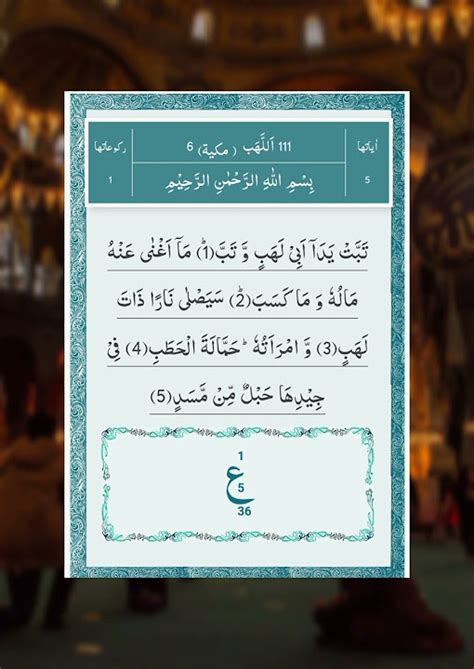 اٰیاتها 111 اَللَّهَب (مکیة) 6 رکوعاتها
5 بِسْمِ اللهِ الرَّحْمٰنِ الرَّحِیْمِ 1
تَبَّتْ یَدَاۤ اَبِیْ لَهَبٍ وَّ تَبَّ(1)ؕ مَاۤ اَغْنٰى عَنْهُ
مَالُهٗ وَ مَا كَسَبَ(2)ؕ سَیَصْلٰى نَارًا ذَاتَ
لَهَبٍ(3) وَّ امْرَاَتُهٗؕ حَمَّالَةَ الْحَطَبِ(4) فِیْ
جِیْدِهَا حَبْلٌ مِّنْ مَّسَدٍ(5)
1
ع
5
36